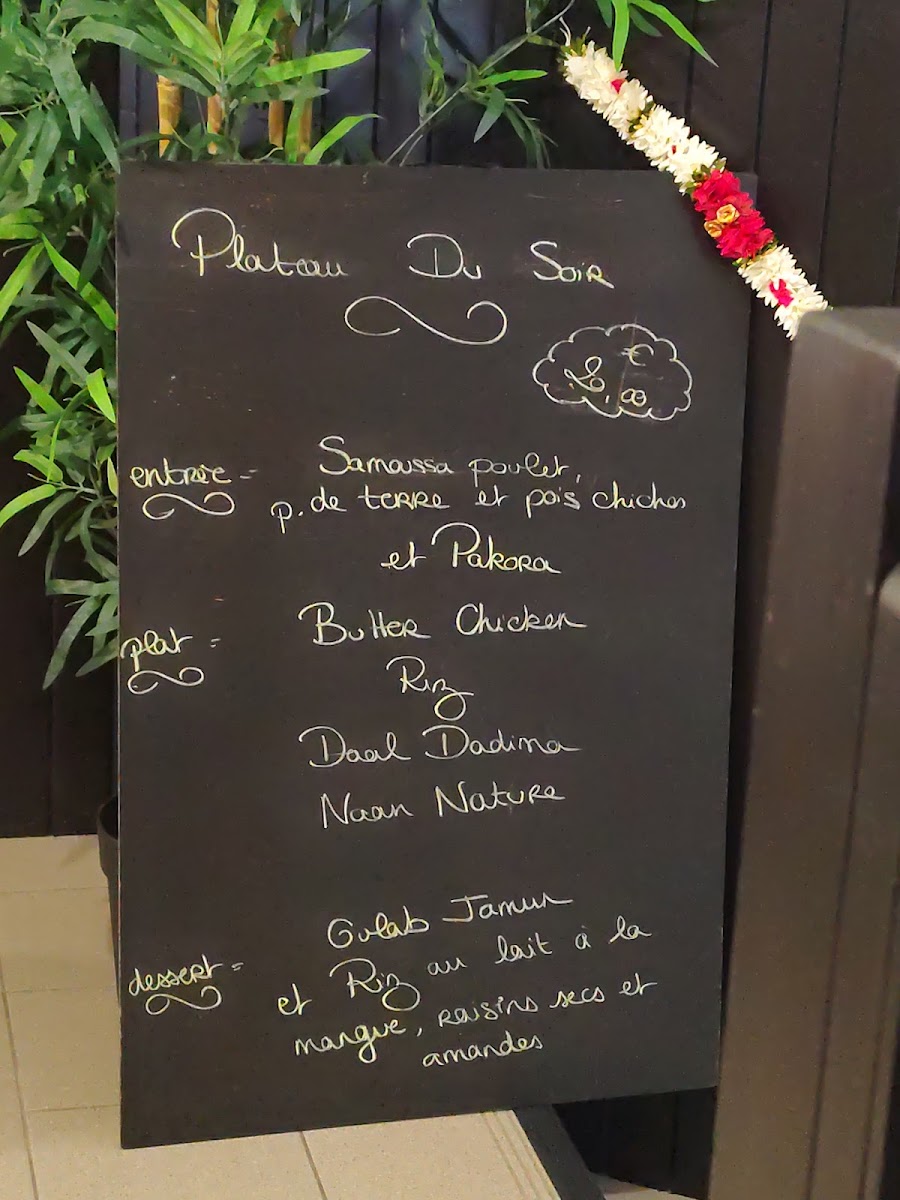 Plateau Du Soir
€
,00
entrée = Samoussa poulet,
p. de terre et pois chiches
et Pakora
plat = Butter Chicken
Riz
Daal Dadima
Naan Nature
Gulab Jamun
dessert = et Riz au lait à la
mangue, raisins secs et
amandes